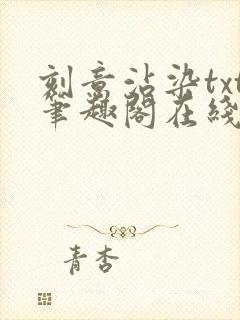 刻意沾染txt
笔趣阁在线
青杏